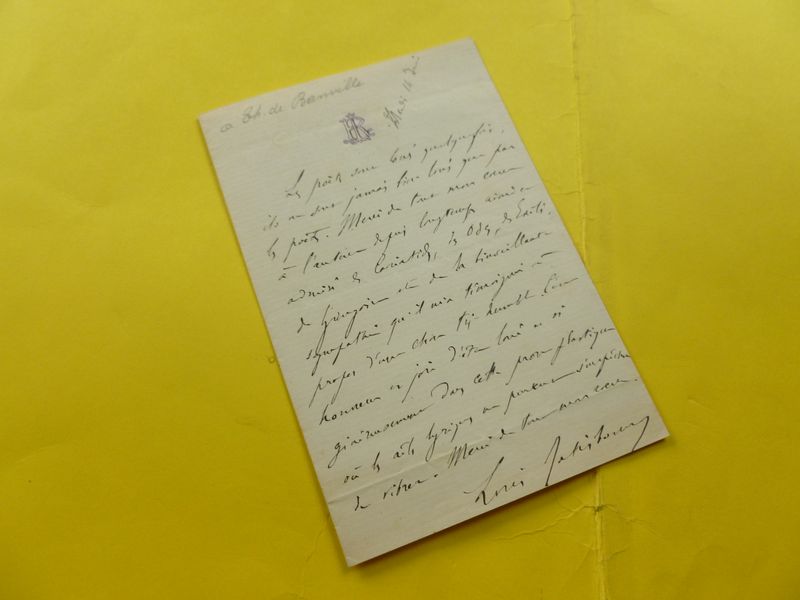 a Th. de Banville
Mardi 16
Les poëtes sont loués quelquefois,
ils ne sont jamais bien loués que par
les poëtes. Merci de tout mon cœur
à l'auteur depuis longtemps aimé et
admiré des Cariatides, des Odes, des Exilés,
de Gringoire et de la bienveillante
sympathie qu'il m'a témoignée à
propos d'une chose très humble. C'est
honneur et joie d'être loué et si
généreusement dans cette prose plastique
où les ailes lyriques ne peuvent s'empêcher
de vibrer. Merci de tout mon cœur.
Louis